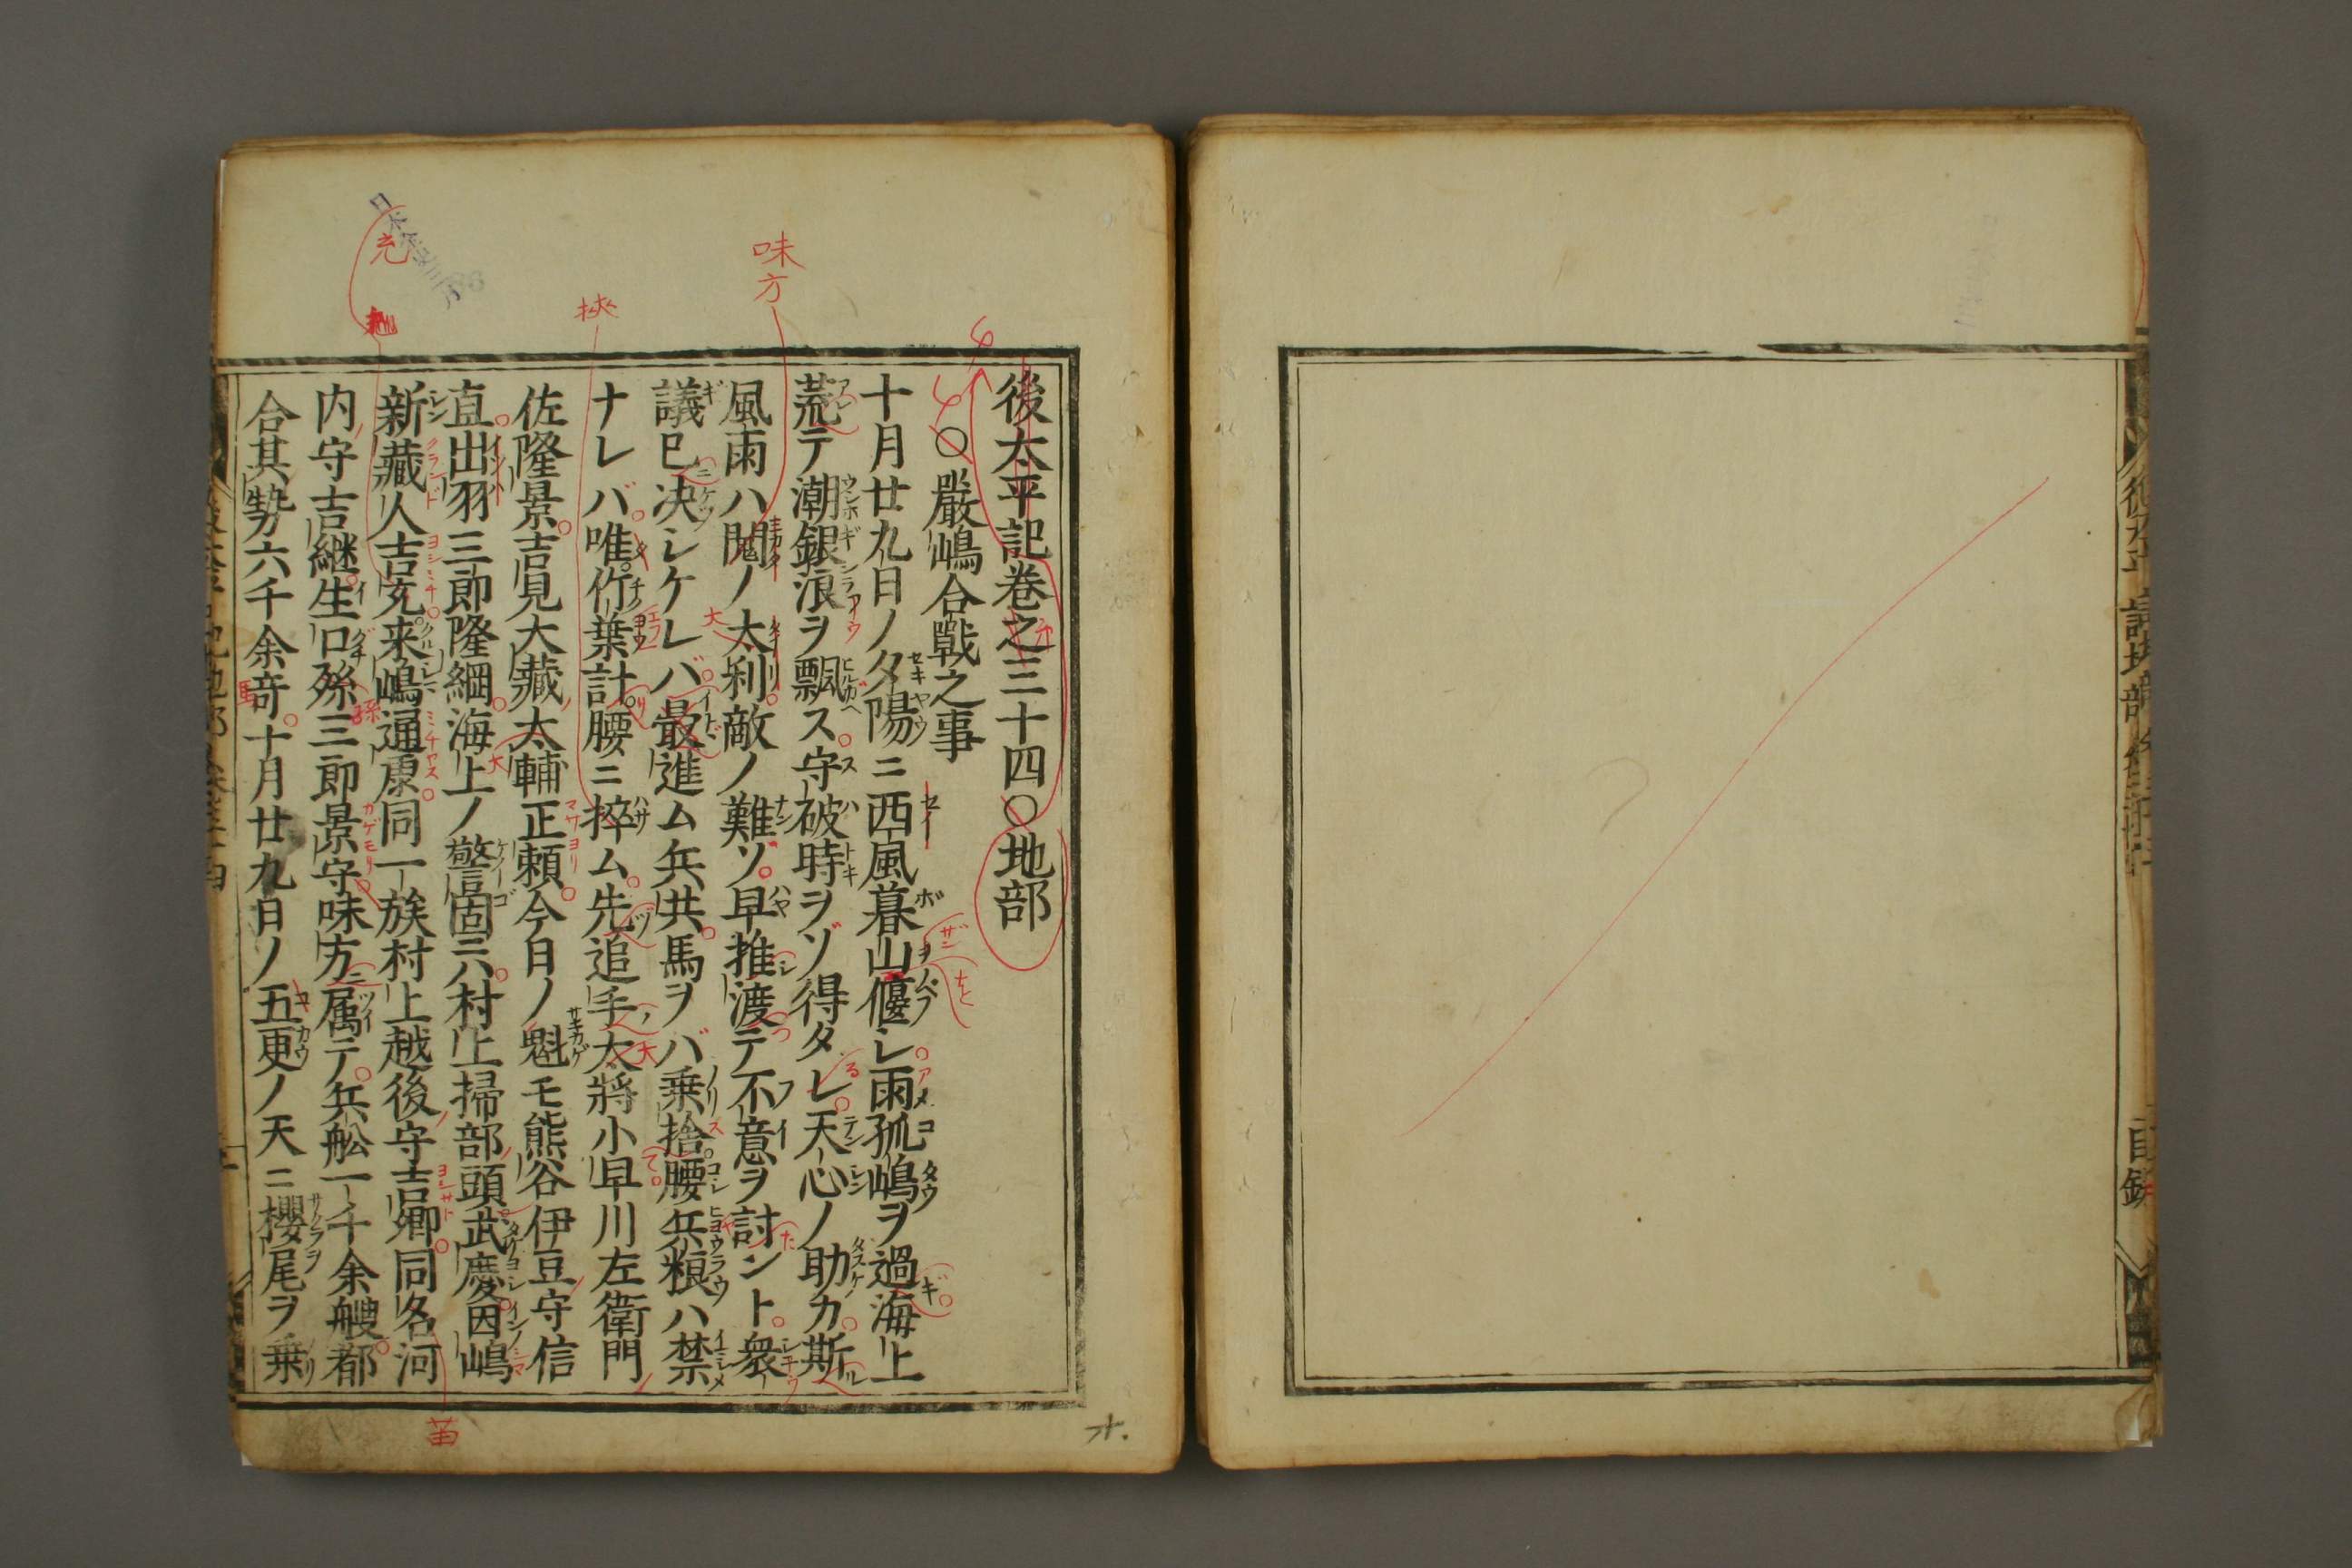 後太平記巻之三十四〇地部
〇嚴嶋合戰之事
十月廿九日ノ夕陽ニ西風暮山偃レ雨孤嶋ヲ過海上
荒テ潮銀浪ヲ飄ス守破時ヲゾ得タレ天心ノ助カ斯
風雨ハ闘ノ太利敵ノ難ゾ早推渡テ不意ヲ討ントト衆
議巳决シケレバ最進ム兵共馬ヲバ乗捨腰兵粮ハ禁
ナレバ唯竹葉計腰ニ捽ム先追手太將小早川左衛門
佐隆景吉見大藏太輔正頼今日ノ魁モ熊谷伊豆守信
直出羽三郎隆綱海上ノ警固ニハ村上掃部頭武慶因嶋
新藏人吉充来嶋通康同一族村上越後守吉郷同名河
内守吉継生口孫三郎景守味方属テ兵舩一千余艘都
合其勢六千余竒十月廿九日ノ五更ノ天ニ櫻尾ヲ乗
味方
挾
充
苗
目録